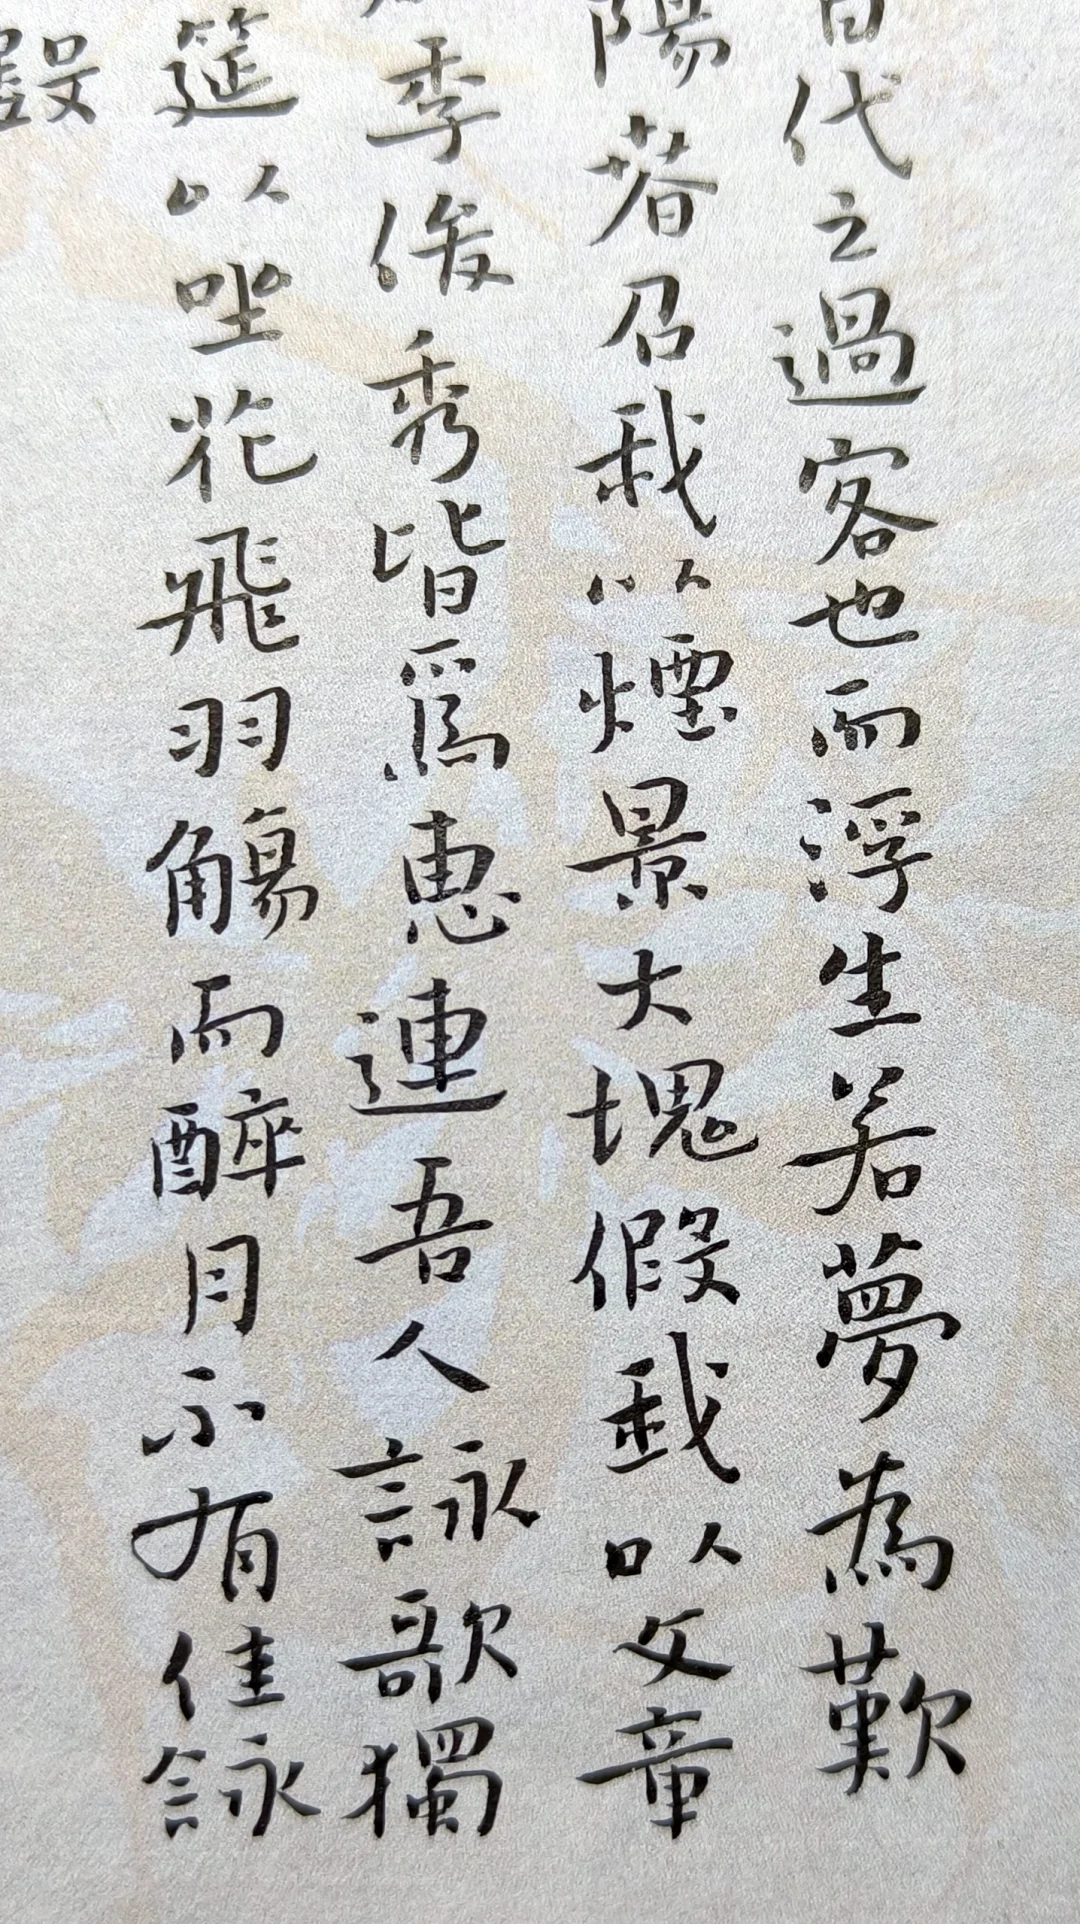 百代之過客也而浮生若夢為歡
陽春召我以煙景大塊假我以文章
季俊秀皆為惠連吾人詠歌獨
筵以坐花飛羽觴而醉月不有佳詠